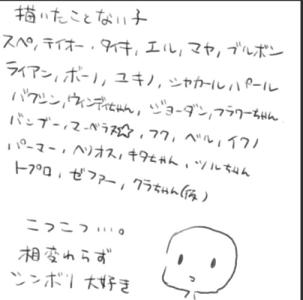 描いたことない子
スペ,テイオー,タイキ,エル,マヤ,ブルボン
ライアン,ボーノ,ユキノ,シャカール,パール
バクシン,ウィンディちゃん,ジョーダン,フラワーちゃん
バンブー,マーベラス☆,フク,ベル,イクノ
パーマー,ヘリオス,キタちゃん,ツルちゃん
トプロ,ゼファー,クラちゃん(仮)
こつこつ…。
相変わらず
シンボリ大好き